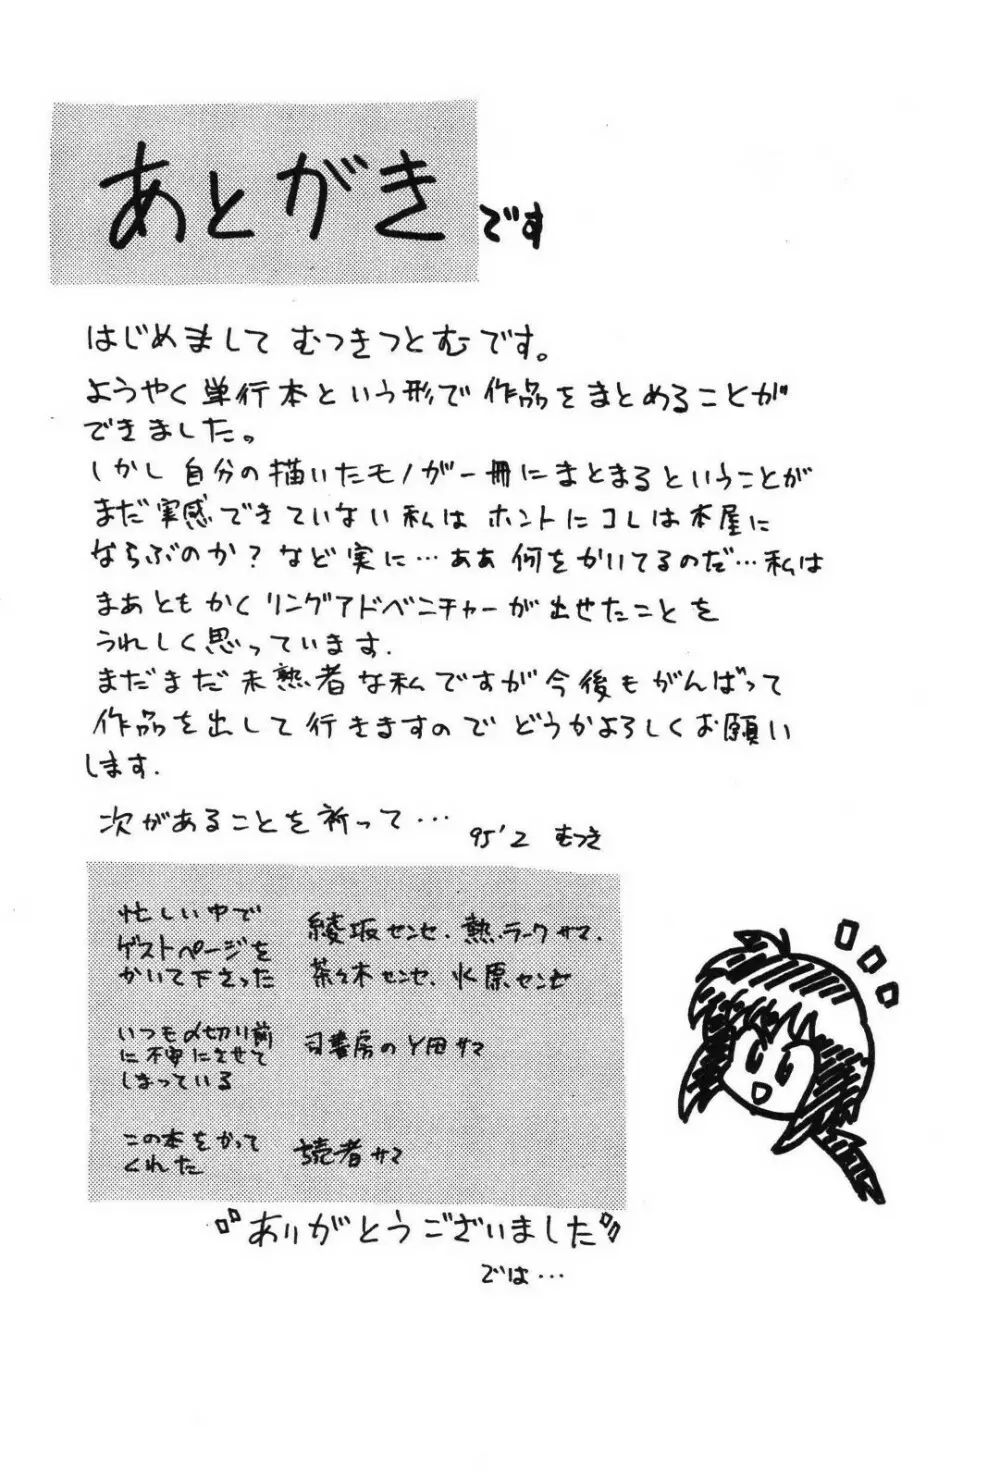 あとがきです
はじめまして むつきつとむです。
ようやく単行本という形で作品をまとめることが
できました。
しかし自分の描いたモノが一冊にまとまるということが
まだ実感できていない私は ホントにコレは本屋に
ならぶのか?など実に…ああ何をかいてるのだ…私は
まあともかくリングアドベンチャーが出せたことを
うれしく思っています.
まだまだ未熟者な私ですが今後もがんばって
作品を出して行きますので どうかよろしくお願い
します.
次があることを祈って…
95'2 むつき
忙しい中で
ゲストページを
かいて下さった
綾坂センセ、熱・ラークサマ、
茶々木センセ、水原センセ
いつも〆切り前
に不安にさせて
しまっている
司書房のY田サマ
この本をかって
くれた
読者サマ
ありがとうございました
では…